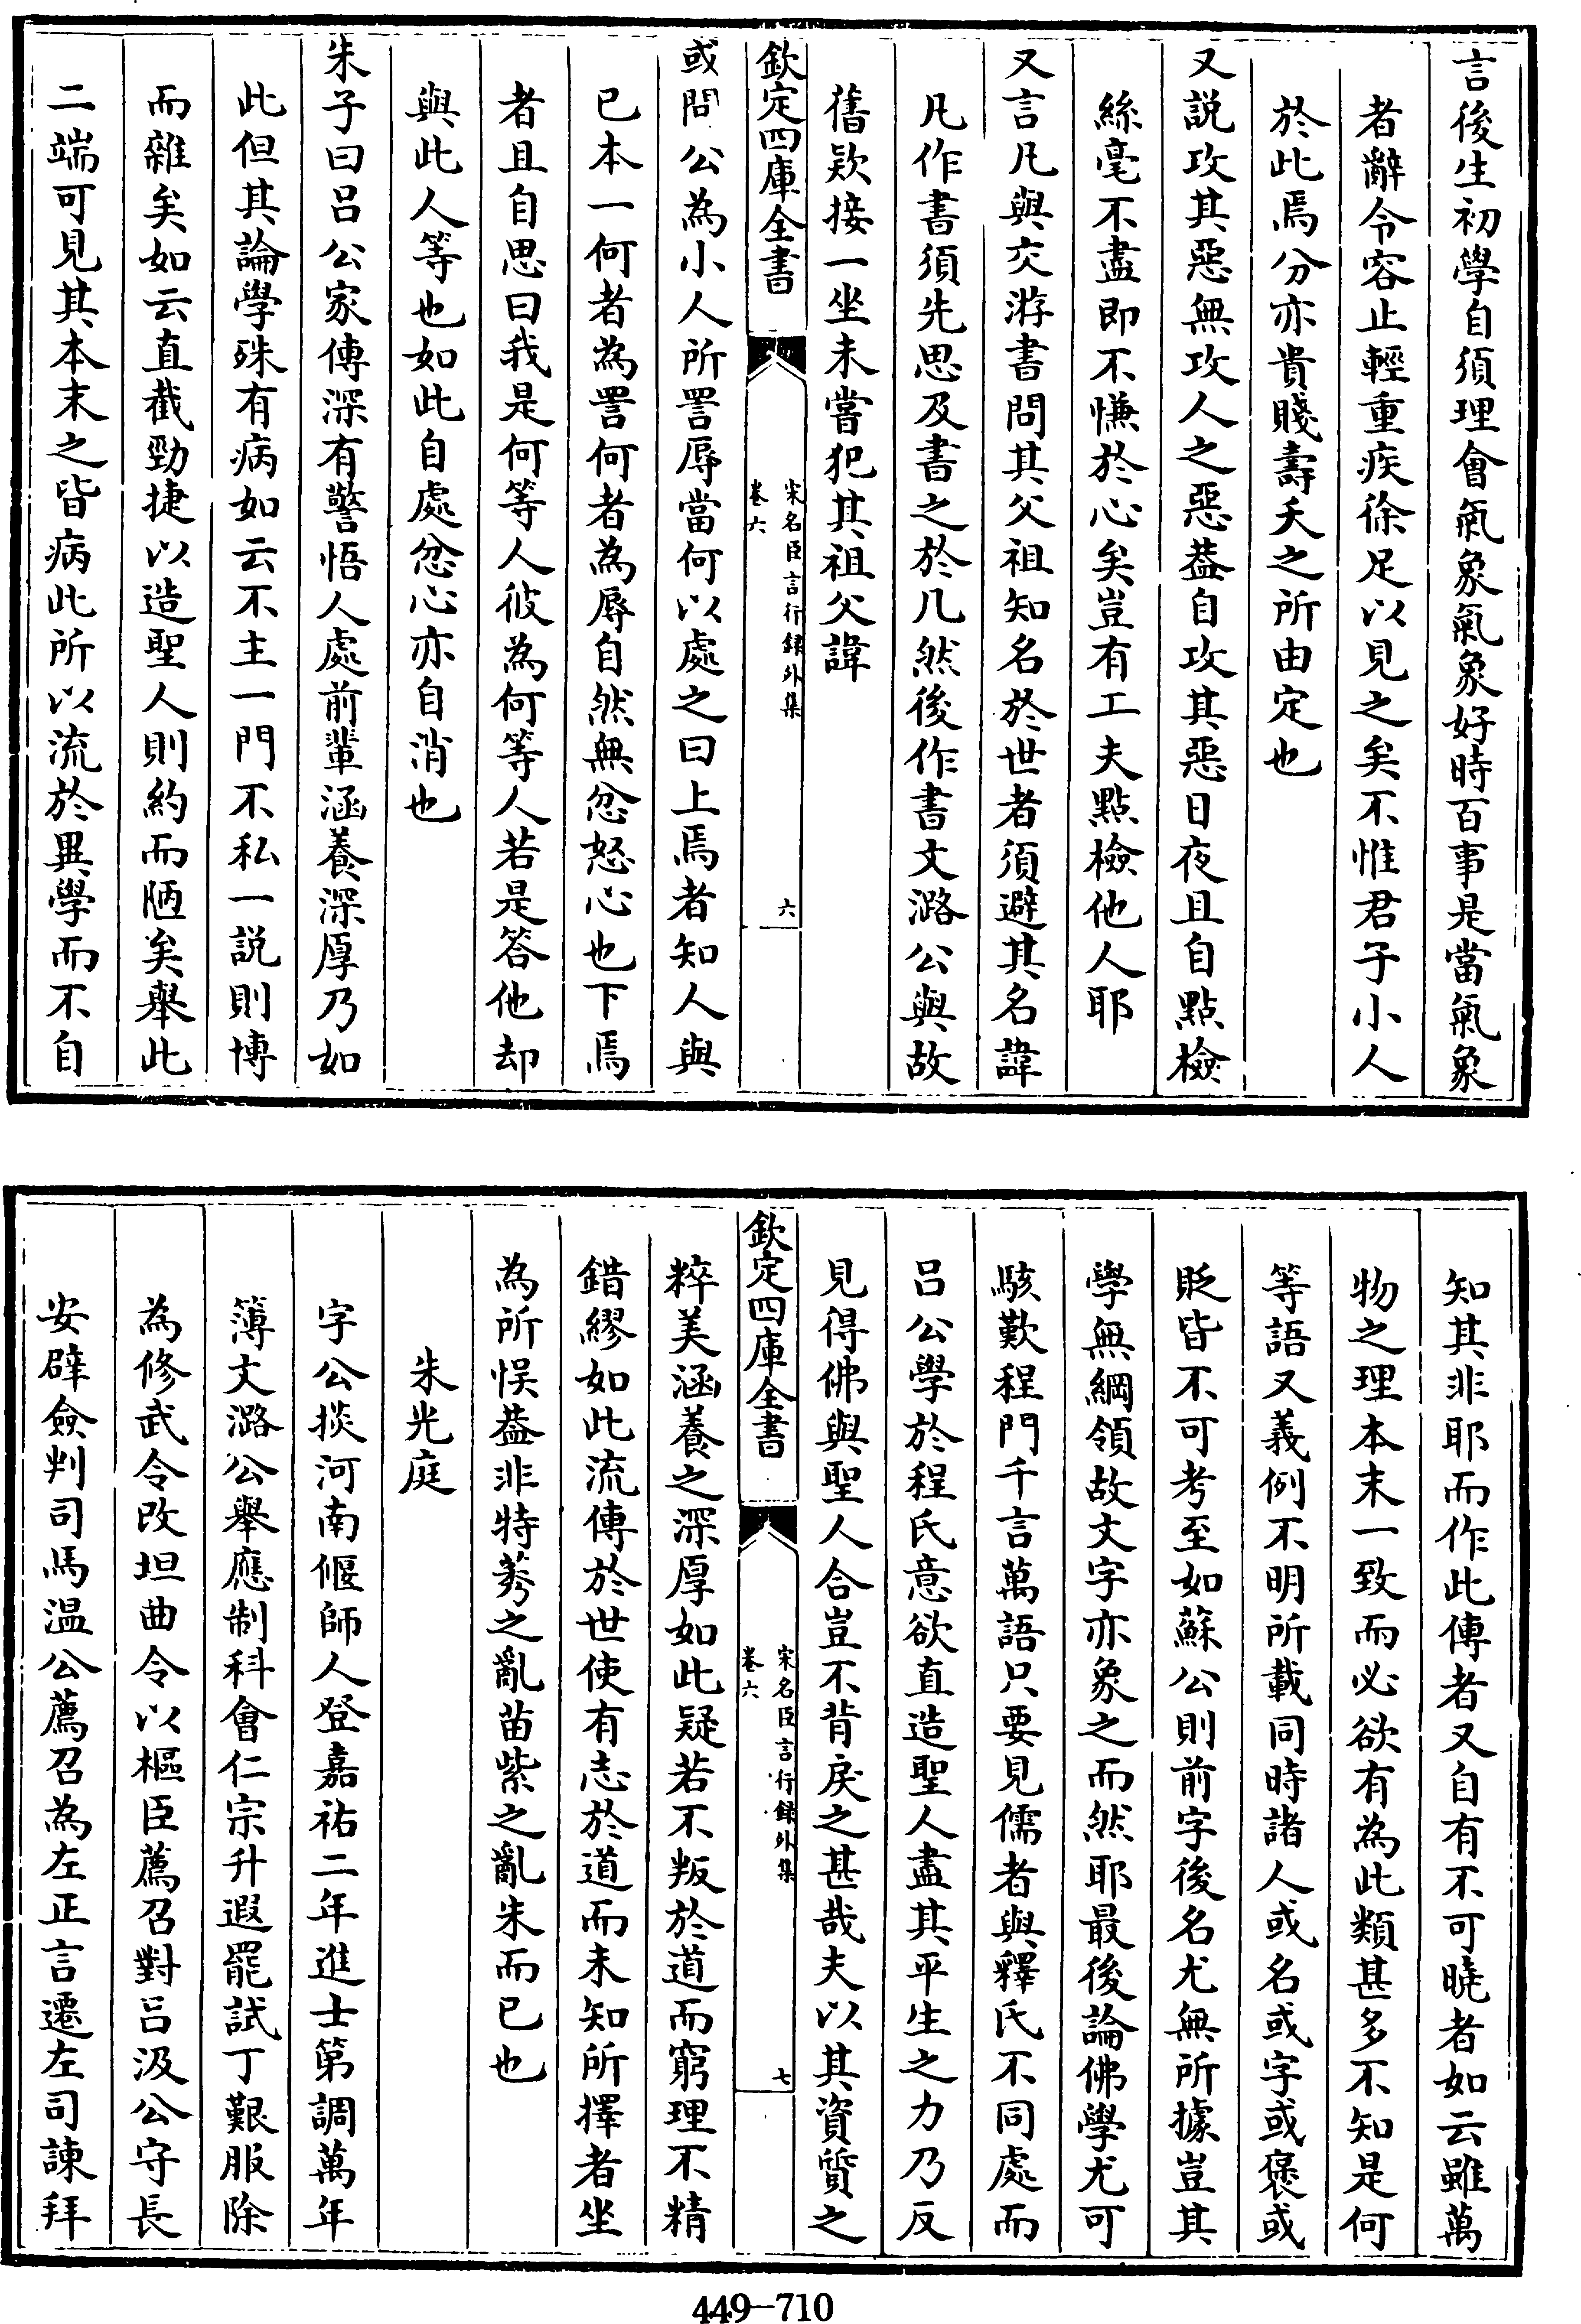 言後生初學自須理會氣象氣象好時百事是當氣象
者辭令容止輕重疾徐足以見之矣不惟君子小人
於此焉分亦貴賤壽夭之所由定也
又説攻其惡無攻人之惡葢自攻其惡日夜且自點檢
絲毫不盡即不慊於心矣豈有工夫點檢他人耶
又言凡與交游書問其父祖知名於世者須避其名諱
凡作書須先思及書之於几然後作書文潞公與故
舊欵接一坐未嘗犯其祖父諱
欽定四庫全書
宋名臣言行録外集
卷六
六
或問公為小人所詈辱當何以處之曰上焉者知人與
已本一何者為詈何者為辱自然無忿怒心也下焉
者且自思曰我是何等人彼為何等人若是答他却
與此人等也如此自處忿心亦自消也
朱子曰吕公家傳深有警悟人處前輩涵養深厚乃如
此但其論學殊有病如云不主一門不私一説則博
而雜矣如云直截勁捷以造聖人則約而陋矣舉此
二端可見其本末之皆病此所以流於異學而不自
知其非耶而作此傳者又自有不可曉者如云雖萬
物之理本末一致而必欲有為此類甚多不知是何
等語又義例不明所載同時諸人或名或字或褒或
貶皆不可考至如蘇公則前字後名尤無所據豈其
學無綱領故文字亦象之而然耶最後論佛學尤可
駭歎程門千言萬語只要見儒者與釋氏不同處而
吕公學於程氏意欲直造聖人盡其平生之力乃反
見得佛與聖人合豈不背戾之甚哉夫以其資質之
欽定四庫全書
宋名臣言行録外集
卷六
七
粹美涵養之深厚如此疑若不叛於道而窮理不精
錯繆如此流傳於世使有志於道而未知所擇者坐
為所悮葢非特莠之亂苗紫之亂朱而已也
朱光庭
字公掞河南偃師人登嘉祐二年進士第調萬年
簿文潞公舉應制科會仁宗升遐罷試丁艱服除
為修武令改垣曲令以樞臣薦召對吕汲公守長
安辟僉判司馬温公薦召為左正言遷左司諫拜
449—710